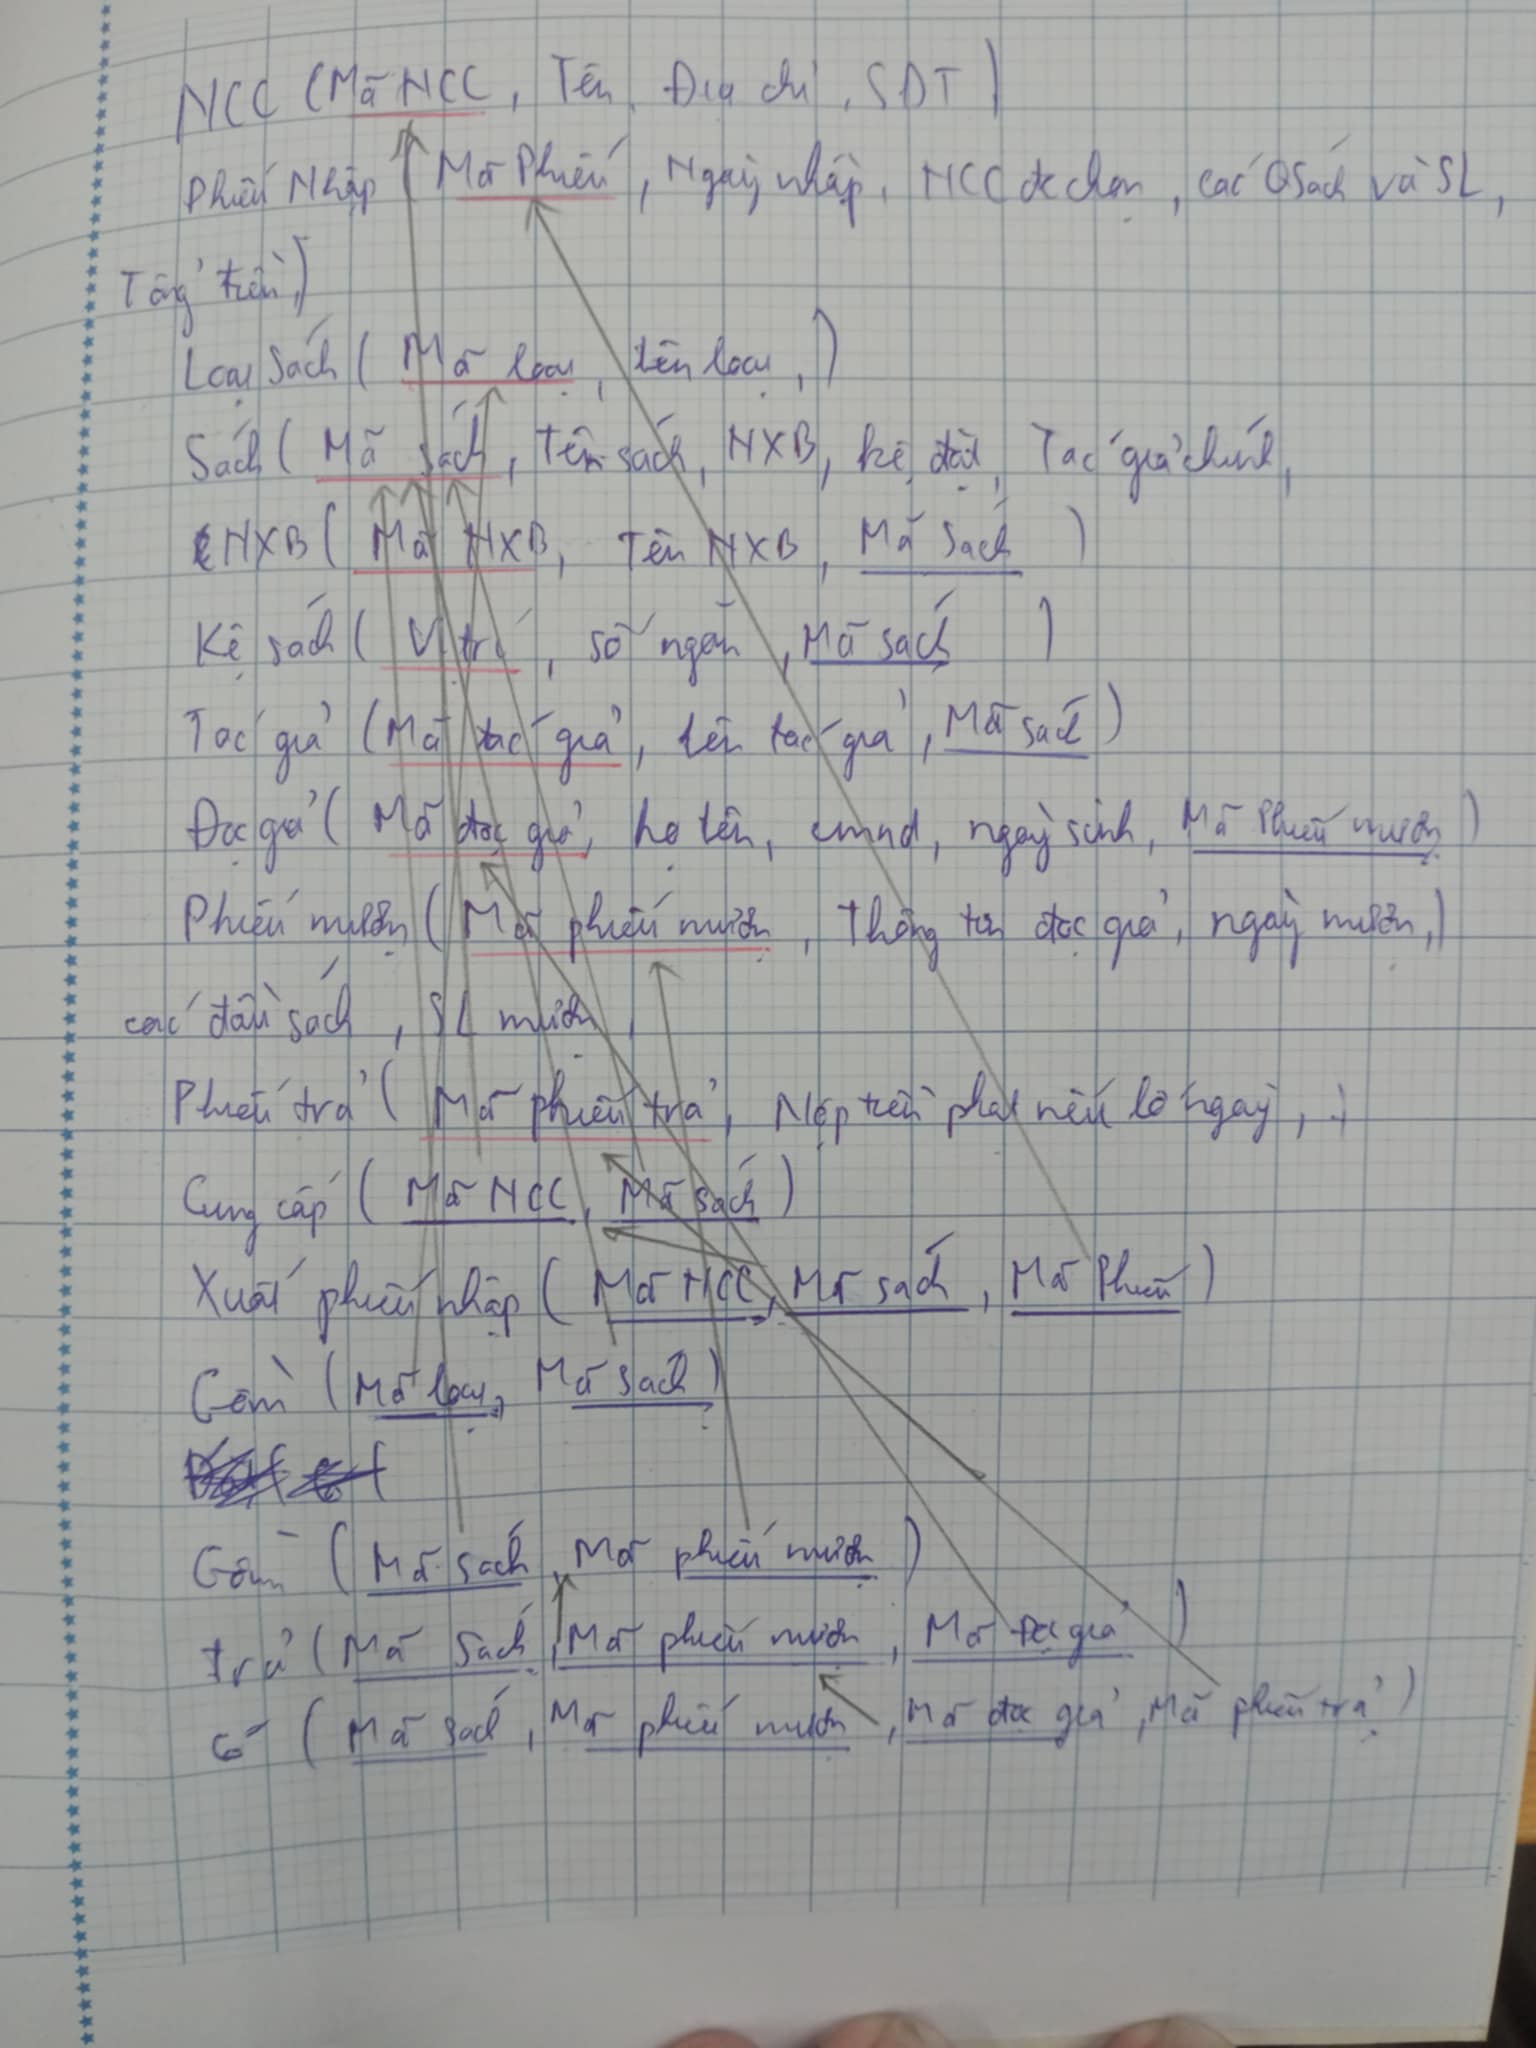 NCC (Mã NCC, Tên, Địa chỉ, SDT)
Phiếu Nhập (Mã Phiếu, Ngày nhập, NCC đc chọn, các QSách và SL,
Tổng tiền,)
Loại Sách (Mã loại, tên loại,)
Sách (Mã sách, Tên sách, NXB, kệ đặt, Tác giả chính,
NXB (Mã NXB, Tên NXB, Mã Sách)
Kệ sách (Vị trí, số ngăn, Mã sách)
Tác giả (Mã tác giả, tên tác giả, Mã sách)
Đọc giả (Mã đọc giả, họ tên, cmnd, ngày sinh, Mã Phiếu mượn)
Phiếu mượn (Mã phiếu mượn, Thông tin đọc giả, ngày mượn,)
các đầu sách, SL mượn,
Phiếu trả (Mã phiếu trả, Nộp tiền phạt nếu lố ngày, .)
Cung cấp (Mã NCC, Mã sách)
Xuất phiếu nhập (Mã NCC, Mã sách, Mã Phiếu)
Gồm (Mã loại, Mã sách)
Gồm (Mã sách, Mã phiếu mượn)
trả (Mã Sách, Mã phiếu mượn, Mã Đọc giả)
có (Mã sách, Mã phiếu mượn, Mã đọc giả, Mã phiếu trả)